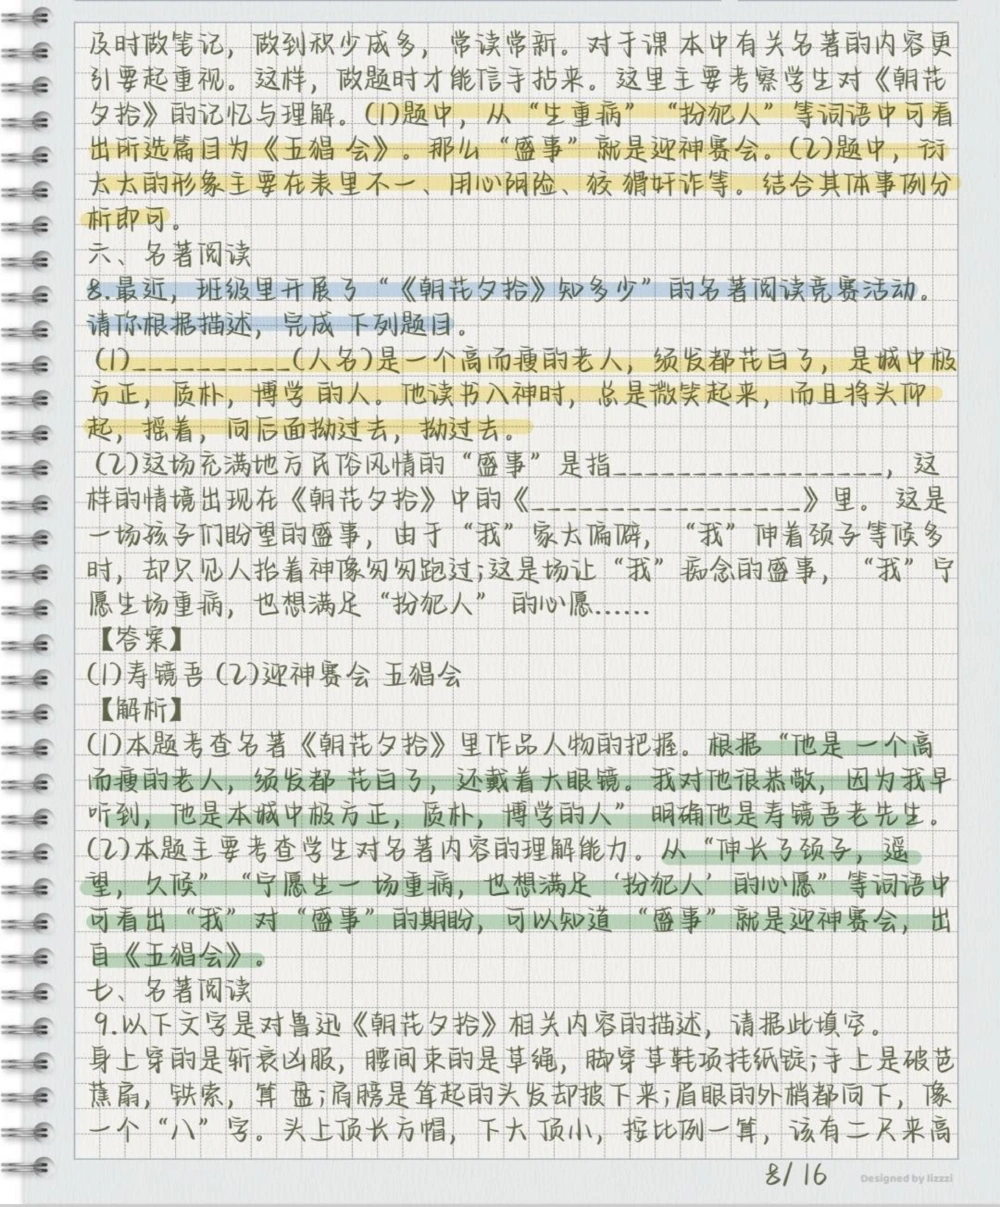 及时做笔记，做到积少成多，常读常新。对于课 本中有关名著的内容更
引要起重视。这样，做题时才能信手拈来。这里主要考察学生对《朝花
夕拾》的记忆与理解。(1)题中，从“生重病”“扮犯人”等词语中可看
出所选篇目为《五猖 会》。那么“盛事”就是迎神赛会。(2)题中，衍
太太的形象主要在表里不一、用心阴险、狡 猾奸诈等。结合其体事例分
析即可。
六、名著阅读
8.最近，班级里开展了“《朝花夕拾》知多少”的名著阅读竞赛活动。
请你根据描述，完成 下列题目。
(1)__________(人名)是一个高而瘦的老人，须发都花白了，是城中极
方正，质朴，博学 的人。他读书入神时，总是微笑起来，而且将头仰
起，摇着，向后面拗过去，拗过去。
(2)这场充满地方民俗风情的“盛事”是指_________________，这
样的情境出现在《朝花夕拾》中的《_________________》里。 这是
一场孩子们盼望的盛事，由于“我”家太偏僻， “我”伸着颈子等候多
时，却只见人抬着神像匆匆跑过;这是场让“我”痴念的盛事， “我”宁
愿生场重病，也想满足“扮犯人” 的心愿……
【答案】
(1)寿镜吾 (2)迎神赛会 五猖会
【解析】
(1)本题考查名著《朝花夕拾》里作品人物的把握。根据“他是 一个高
而瘦的老人，须发都 花白了，还戴着大眼镜。我对他很恭敬，因为我早
听到，他是本城中极方正，质朴，博学的人” 明确他是寿镜吾老先生。
(2)本题主要考查学生对名著内容的理解能力。从“伸长了颈子，遥
望，久候”“宁愿生一 场重病，也想满足‘扮犯人’的心愿”等词语中
可看出“我”对“盛事”的期盼，可以知道 “盛事”就是迎神赛会，出
自《五猖会》。
七、名著阅读
9.以下文字是对鲁迅《朝花夕拾》相关内容的描述，请据此填空。
身上穿的是斩衰凶服，腰间束的是草绳，脚穿草鞋项挂纸锭;手上是破芭
蕉扇，铁索，算 盘;肩膀是耸起的头发却披下来;眉眼的外梢都向下，像
一个“八”字。头上顶长方帽，下大 顶小，按比例一算，该有二尺来高
8/16
Designed by lizzzi